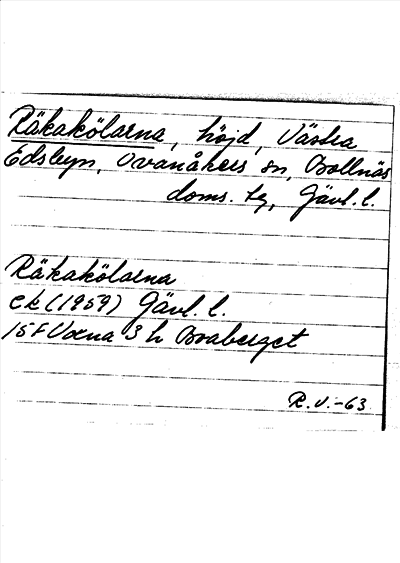 Räkakölarna, höjd, Västra
Edsbyn, Ovanåkers sn, Bollnäs
doms. tg, Gävl. l.
Räkakölarna
ek (1959) Gävl. l.
15F Voxna 3 h Braberget
R.V.-63